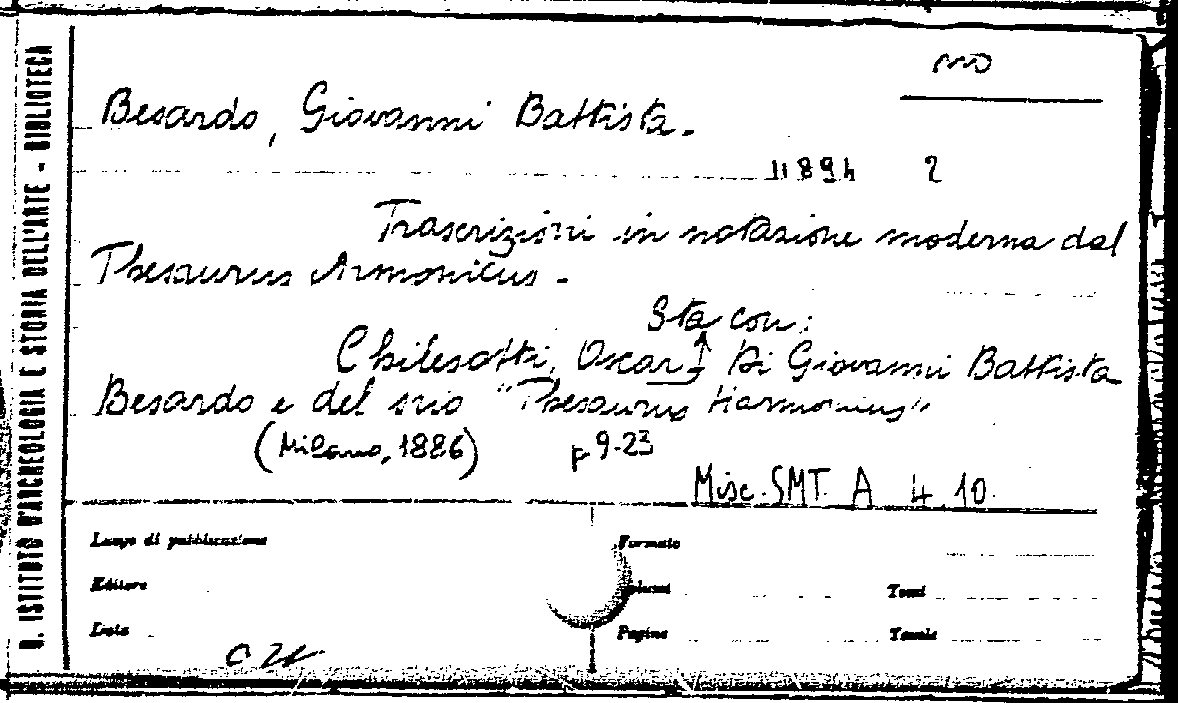 R. ISTITUTO D'ARCHEOLOGIA E STORIA DELL'ARTE - BIBLIOTECA
Besardo, Giovanni Battista.
Trascrizioni in notazione moderna dal
Thesaurus Armonicus.
Sta con:
Chilesotti, Oscar Di Giovanni Battista
Besardo e del suo "Thesaurus Harmonicus"
(Milano, 1886) p 9-23
Misc. SMT. A 4. 10.
Luogo di pubblicazione
Formato
Editore
Tomi
Data
Pagine
Tavole